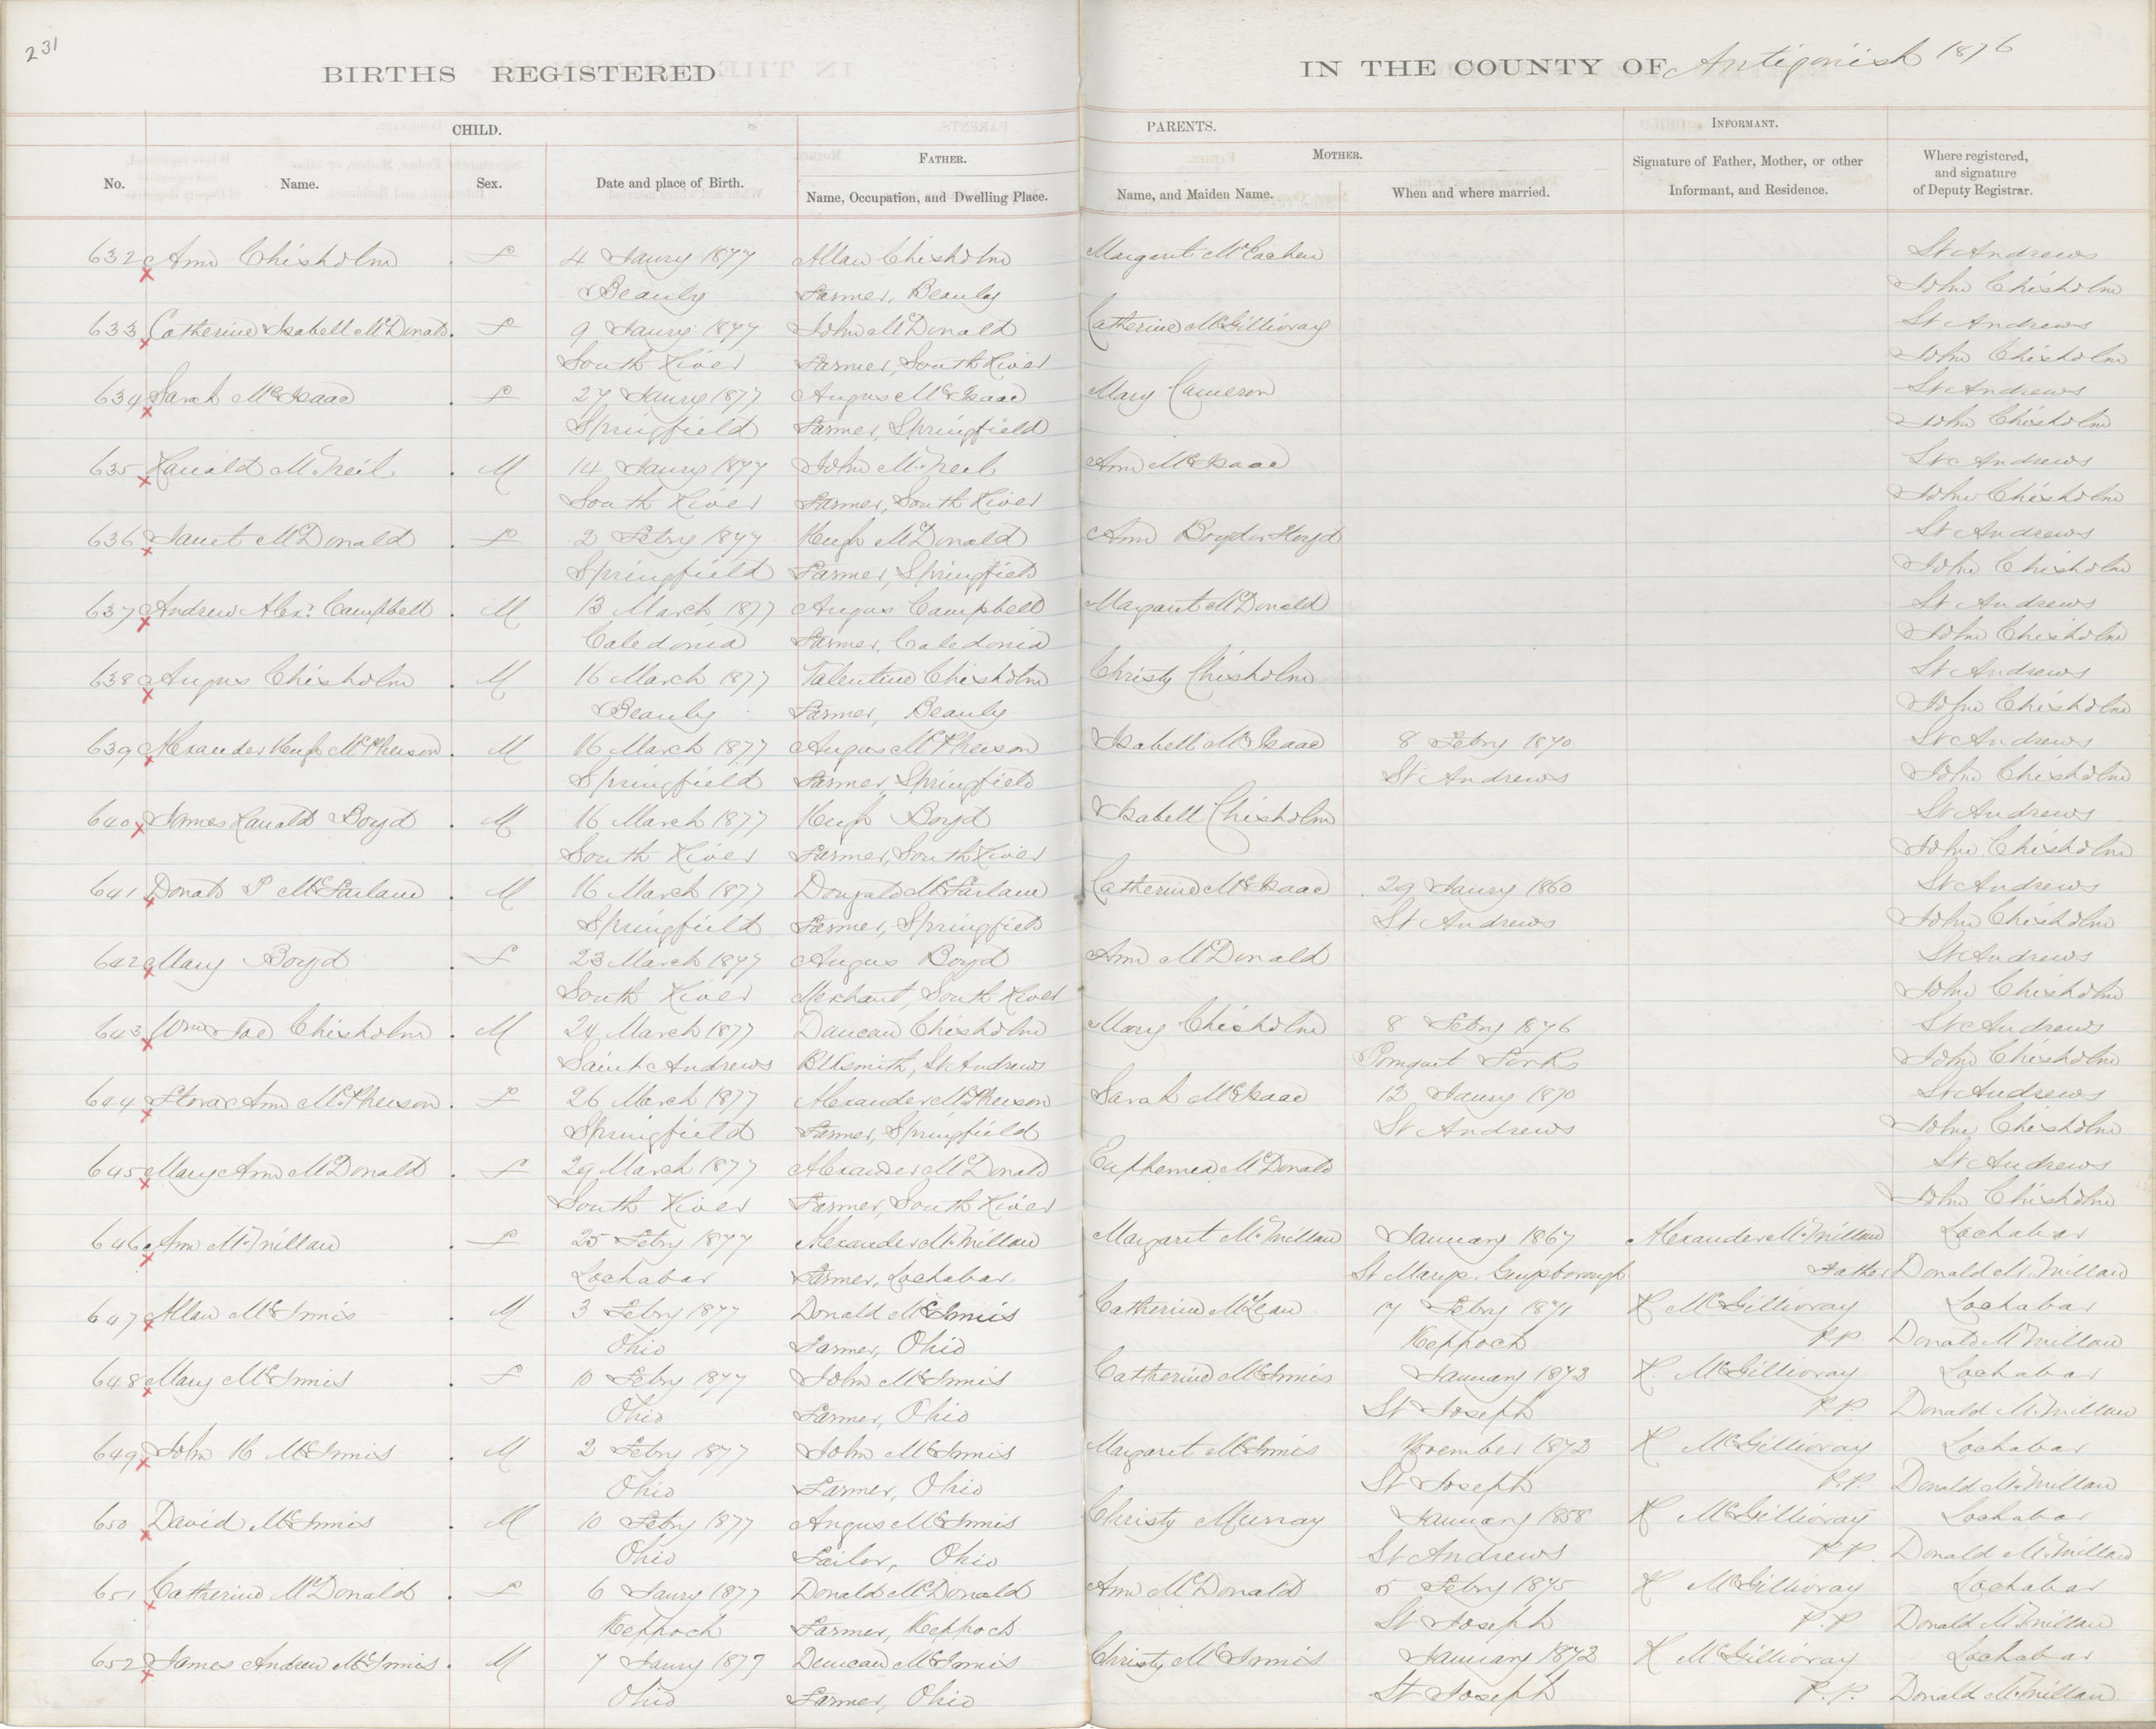 231
BIRTHS REGISTERED IN THE COUNTY OF Antigonish 1876
CHILD. PARENTS. INFORMANT.
FATHER. MOTHER.
No. Name. Sex. Date and place of Birth. Name, Occupation, and Dwelling Place. Name, and Maiden Name. When and where married. Signature of Father, Mother, or other Informant, and Residence. Where registered, and signature of Deputy Registrar.
632 Ann Chisholm F 4 Jaury 1877 Allan Chisholm Margaret McEachen St Andrews
Beauly Farmer, Beauly John Chisholm
633 Catherine Isabell McDonald F 9 Jaury 1877 John McDonald Catherine McGillivray St Andrews
South River Farmer, South River John Chisholm
634 Sarah McIsaac F 27 Jaury 1877 Angus McIsaac Mary Cameron St Andrews
Springfield Farmer, Springfield John Chisholm
635 Ranald McNeil M 14 Jaury 1877 John McNeil Ann McIsaac St Andrews
South River Farmer, South River John Chisholm
636 Janet McDonald F 2 Febry 1877 Hugh McDonald Ann Boyd or Floyd St Andrews
Springfield Farmer, Springfield John Chisholm
637 Andrew Alexr Campbell M 13 March 1877 Angus Campbell Margaret McDonald St Andrews
Caledonia Farmer, Caledonia John Chisholm
638 Angus Chisholm M 16 March 1877 Valentine Chisholm Christy Chisholm St Andrews
Beauly Farmer, Beauly John Chisholm
639 Alexander Hugh McPherson M 16 March 1877 Angus McPherson Isabell McIsaac 8 Febry 1870 St Andrews
Springfield Farmer, Springfield St Andrews John Chisholm
640 James Ranald Boyd M 16 March 1877 Hugh Boyd Isabell Chisholm St Andrews
South River Farmer, South River John Chisholm
641 Donald P McFarlane M 16 March 1877 Dougald McFarlane Catherine McIsaac 29 Jaury 1860 St Andrews
Springfield Farmer, Springfield St Andrews John Chisholm
642 Mary Boyd F 23 March 1877 Angus Boyd Ann McDonald St Andrews
South River Merchant, South River John Chisholm
643 Wm Joe Chisholm M 24 March 1877 Duncan Chisholm Mary Chisholm 8 Febry 1876 St Andrews
Saint Andrews Blksmith, St Andrews Pomquet Forks John Chisholm
644 Flora Ann McPherson F 26 March 1877 Alexander McPherson Sarah McIsaac 12 Jaury 1870 St Andrews
Springfield Farmer, Springfield St Andrews John Chisholm
645 Mary Ann McDonald F 29 March 1877 Alexander McDonald Euphemia McDonald St Andrews
South River Farmer, South River John Chisholm
646 Ann McMillan F 25 Febry 1877 Alexander McMillan Margaret McMillan January 1867 Alexander McMillan Lochabar
Lochabar Farmer, Lochabar St Marys. Guysborough Father Donald McMillan
647 Allan McInnis M 3 Febry 1877 Donald McInnis Catherine McLean 17 Febry 1871 R McGillivray Lochabar
Ohio Farmer, Ohio Keppoch P.P. Donald McMillan
648 Mary McInnis F 10 Febry 1877 John McInnis Catherine McInnis January 1873 R. McGillivray Lochabar
Ohio Farmer, Ohio St Joseph P.P. Donald McMillan
649 John H McInnis M 2 Febry 1877 John McInnis Margaret McInnis November 1872 R McGillivray Lochabar
Ohio Farmer, Ohio St Joseph P.P. Donald McMillan
650 David McInnis M 10 Febry 1877 Angus McInnis Christy Murray January 1858 R McGillivray Lochabar
Ohio Ohio St Andrews P.P. Donald McMillan
651 Catherine McDonald F 6 Jaury 1877 Donald McDonald Ann McDonald 5 Febry 1875 R McGillivray Lochabar
Keppoch Farmer, Keppoch St Joseph P.P Donald McMillan
652 James Andrew McInnis M 7 Jaury 1877 Duncan McInnis Christy McInnis January 1872 R McGillivray Lochabar
Ohio Farmer, Ohio St Joseph P.P. Donald McMillan